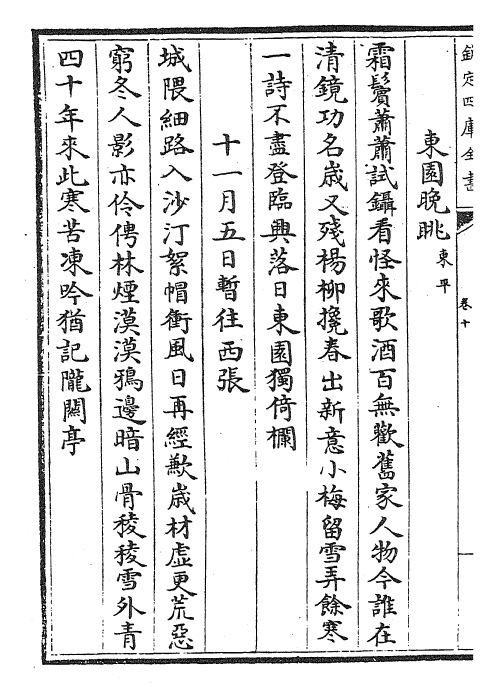 欽定四庫全書
卷十
東園晩眺東平
霜鬢蕭蕭試鑷看怪來歌酒百無歡舊家人物今誰在
清鏡功名歳又殘楊柳攙春出新意小梅留雪弄餘寒
一詩不盡登臨興落日東園獨倚欄
十一月五日暫往西張
城隈細路入沙汀絮帽衝風日再經歉歳村虛更荒惡
窮冬人影亦伶俜林煙漠漠鴉邊暗山骨稜稜雪外青
四十年來此寒苦凍吟猶記隴關亭